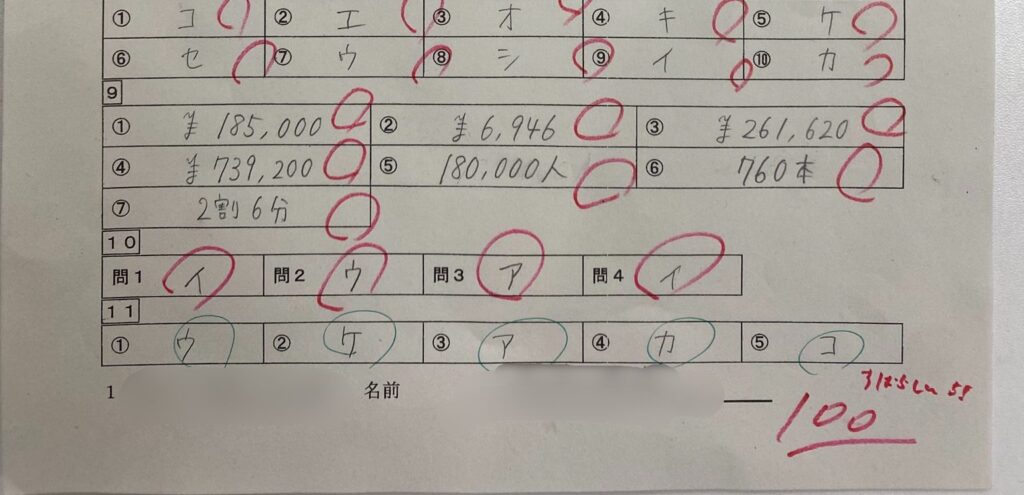 ① コ ② エ ③ オ ④ キ ⑤ ケ
⑥ セ ⑦ ウ ⑧ シ ⑨ イ ⑩ カ
9
① ¥185,000 ② ¥6,946 ③ ¥261,620
④ ¥739,200 ⑤ 180,000人 ⑥ 760本
⑦ 2割6分
10
問1 イ 問2 ウ 問3 ア 問4 イ
11
① ウ ② ケ ③ ア ④ カ ⑤ コ
1 名前
100